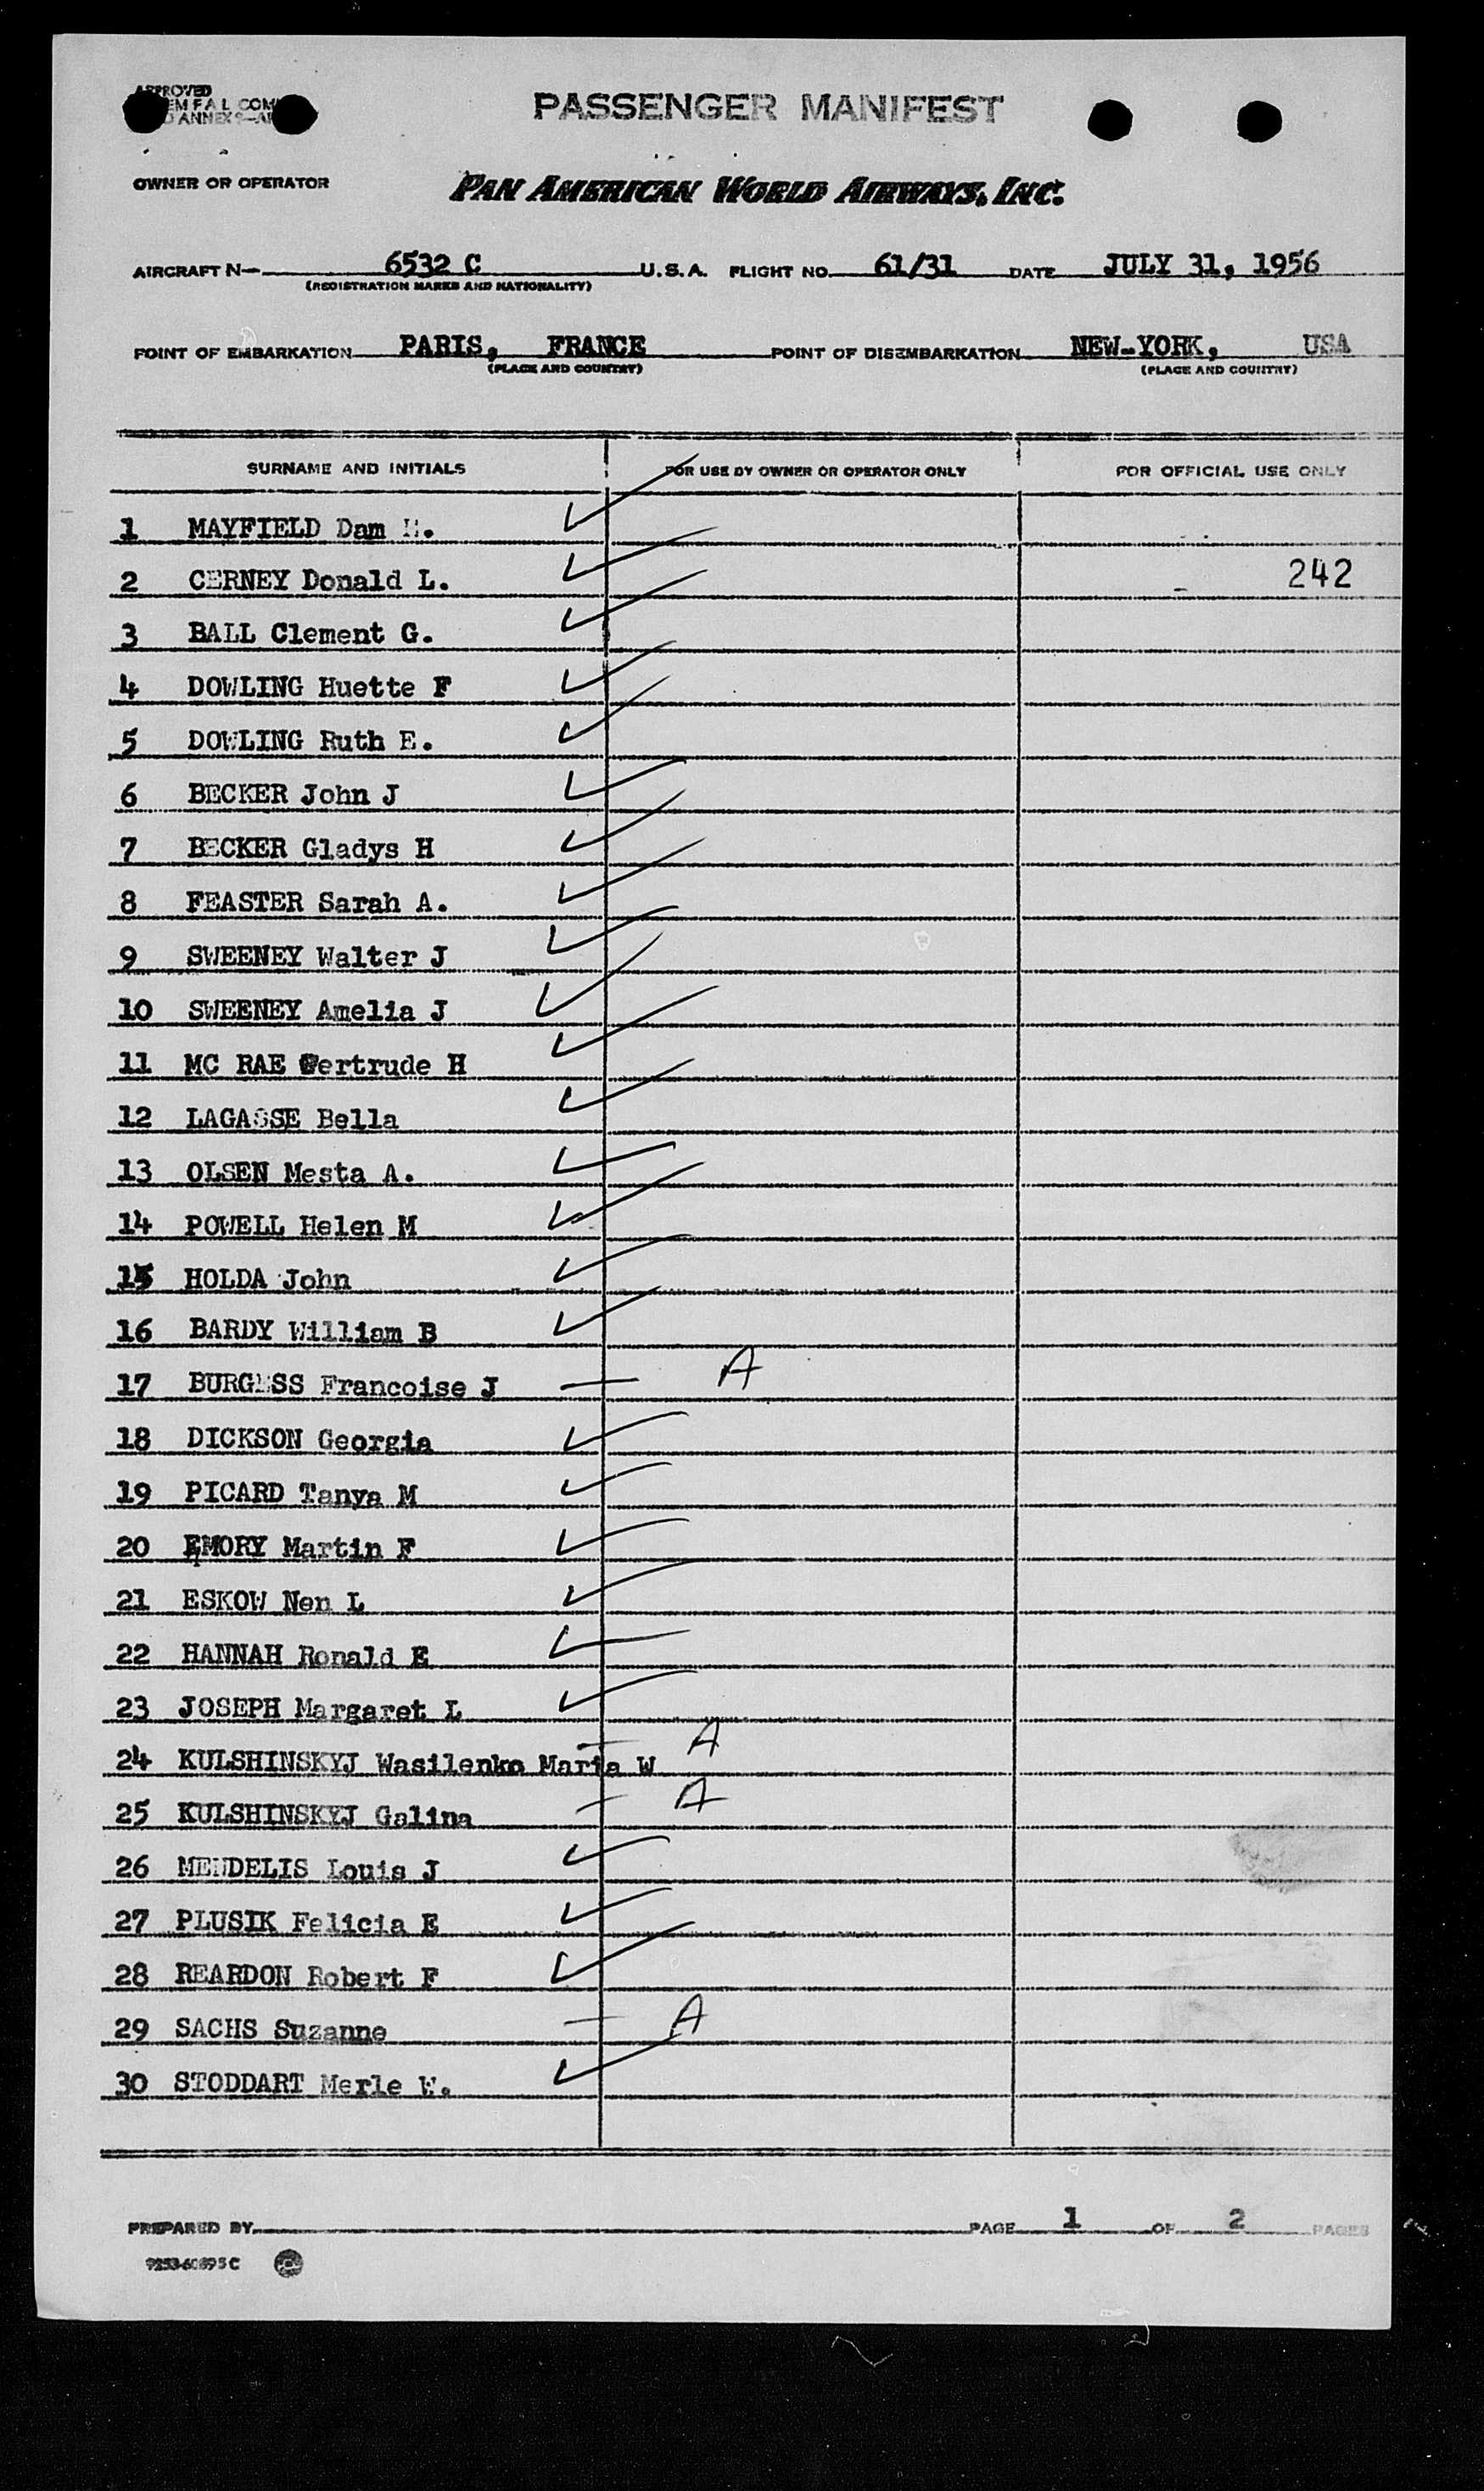 APPROVED
PASSENGER MANIFEST
OWNER OR OPERATOR
PAN AMERICAN WORLD AIRWAYS, INC.
AIRCRAFT N— 6532 C U.S.A. FLIGHT NO. 61/31 DATE JULY 31, 1956
(REGISTRATION MARKS AND NATIONALITY)
POINT OF EMBARKATION PARIS, FRANCE POINT OF DISEMBARKATION NEW-YORK, USA
(PLACE AND COUNTRY) (PLACE AND COUNTRY)
SURNAME AND INITIALS FOR USE BY OWNER OR OPERATOR ONLY FOR OFFICIAL USE ONLY
1 MAYFIELD Dam
2 CERNEY Donald L. 242
3 BALL Clement G.
4 DOWLING Huette F
5 DOWLING Ruth E.
6 BECKER John J
7 BECKER Gladys H
8 FEASTER Sarah A.
9 SWEENEY Walter J
10 SWEENEY Amelia J
11 MC RAE Gertrude H
12 LAGASSE Bella
13 OLSEN Mesta A.
14 POWELL Helen M
15 HOLDA John
16 BARDY William B
17 BURGESS Francoise J — A
18 DICKSON Georgia
19 PICARD Tanya M
20 EMORY Martin F
21 ESKOW Nen L
22 HANNAH Ronald E
23 JOSEPH Margaret L
24 KULSHINSKYJ Wasilenko Maria W — A
25 KULSHINSKYJ Galina — A
26 MENDELIS Louis J
27 PLUSIK Felicia E
28 REARDON Robert F
29 SACHS Suzanne — A
30 STODDART Merle W.
PREPARED BY PAGE 1 OF 2 PAGES